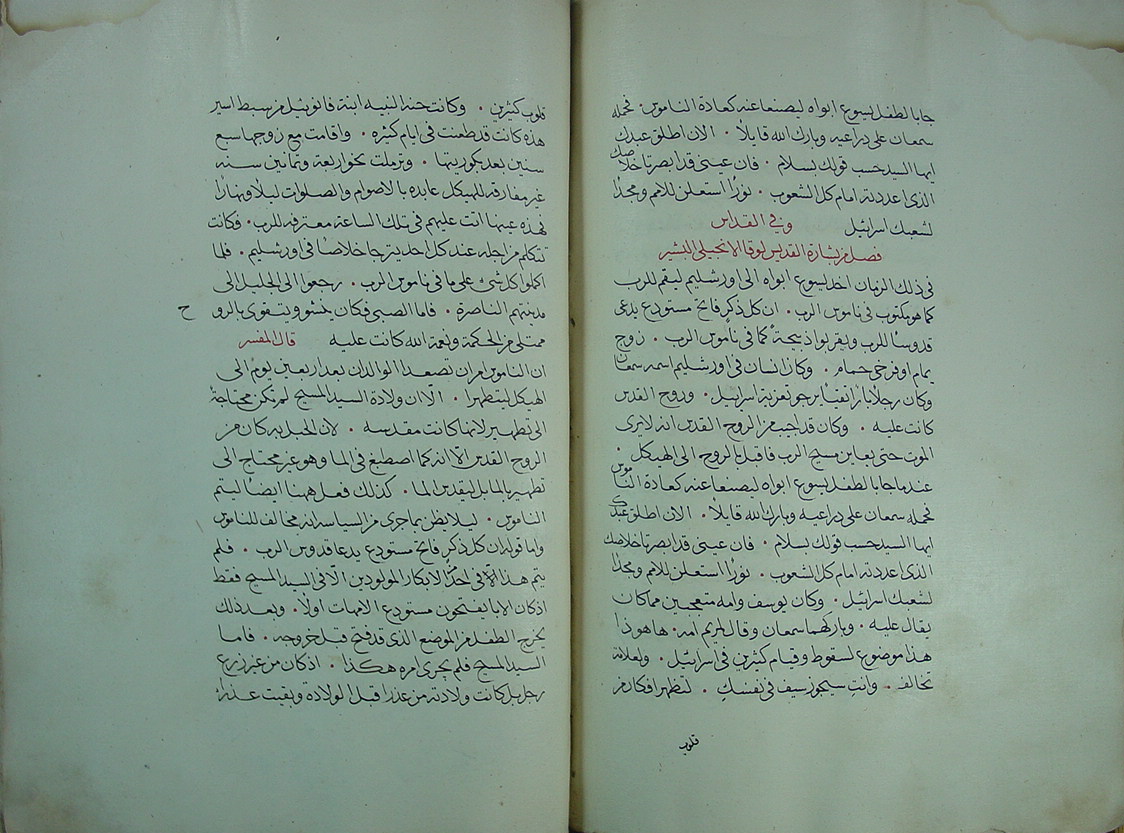 جابا لطفل يسوع ابواه ليصنعا عنه كعادة الناموس · فحمله
سمعان على دراعيه وبارك الله قايلاً · الان اطلق عبدك
ايها السيد حسب قولك بسلام · فان عينى قد ابصرتا خلاصك
الذى اعددته امام كل الشعوب · نورًا استعلن للامم ومجدًا
لشعبك اسرائيل وفى القداس
فصل من بشارة القديس لوقا الانجيلى البشير
فى ذلك الزمان اخد ليسوع ابواه الى اورشليم ليقم للرب
كما هو مكتوب فى ناموس الرب · ان كل ذكرٍ فاتح مستودع يدعى
قدوسًا للرب ويقربوا ذبيحةً كما فى ناموس الرب · زوج
يمام او فرخى حمام · وكان انسان فى اورشليم اسمه سمعان
وكان رجلاً بارًا تقيًا يرجو تعزية اسرائيل · وروح القدس
كانت عليه · وكان قد اجيب من الروح القدس انه لا يرى
الموت حتى يعاين مسيح الرب فاقبل بالروح الى الهيكل ·
عندما جابا لطفل يسوع ابواه ليصنعا عنه كعادة الناموس
فحمله سمعان على دراعيه وبارك الله قايلاً · الان اطلق عبدك
ايها السيد حسب قولك بسلام · فان عينى قد ابصرتا خلاصك
الذى اعددته امام كل الشعوب · نورًا استعلن للامم ومجدًا
لشعبك اسرائيل · وكان يوسف وامه متعجبين مما كان
يقال عليه · وباركهما سمعان وقال لمريم امه · ها هو ذا
هذا موضوع لسقوط وقيام كثيرين فى اسرائيل · ولعلامة
تخالف · وانتِ سيجوز سيف فى نفسكِ · لتظهر افكار من
قلوب
قلوب كثيرين · وكانت حنه النبيه ابنة فانوئيل من سبط اسير
هذه كانت قد طعنت فى ايام كثيره · واقامت مع زوجها سبع
سنين بعد بكوريتها · وترملت نحو اربعة وتمانين سنه
غير مفارقه للهيكل عابده بالاصوام والصلوات ليلاً ونهارًا
فهذه عينها اتت عليهم فى تلك الساعة معترفه للرب · وكانت
تتكلم من اجله عند كل احد يترجا خلاصًا فى اورشليم · فلما
اكملوا كل شئ على ما فى ناموس الرب · رجعوا الى الجليل الى
مدينتهم الناصرة · فاما الصبى فكان ينشو ويتقوى بالروح
ممتلى من الحكمة ونعمة الله كانت عليه قال المفسر
ان الناموس امر ان تصعد الوالدات بعد اربعين يوم الى
الهيكل ليتطهرا · الا ان ولادة السيد المسيح لم تكن محتاجة
الى تطهير لانها كانت مقدسه · لان الحبل به كان من
الروح القدس الا انه كما اصطبغ فى الما وهو غير محتاج الى
تطهير بالما بل ليقدس الما · كذلك فعل ههنا ايضًا ليتم
الناموس · ليلا يظن بما جرى من السياسه انه مخالف للناموس
واما قوله ان كل ذكرٍ فاتح مستودع يدعا قدوس الرب · فلم
يتم هذا الا فى احدٌ الابكار المولودين الا فى السيد المسيح فقط
اذ كان الابا يفتحون مستودع الامهات اولاً · وبعد ذلك
يخرج الطفل من الموضع الذى قد فتح قبل خروجه · فاما
السيد المسيح فلم يجرى امره هكذا · اذ كان من غير زرع
رجل بل كانت ولادته من عذرا قبل الولادة وبقيت عذرا